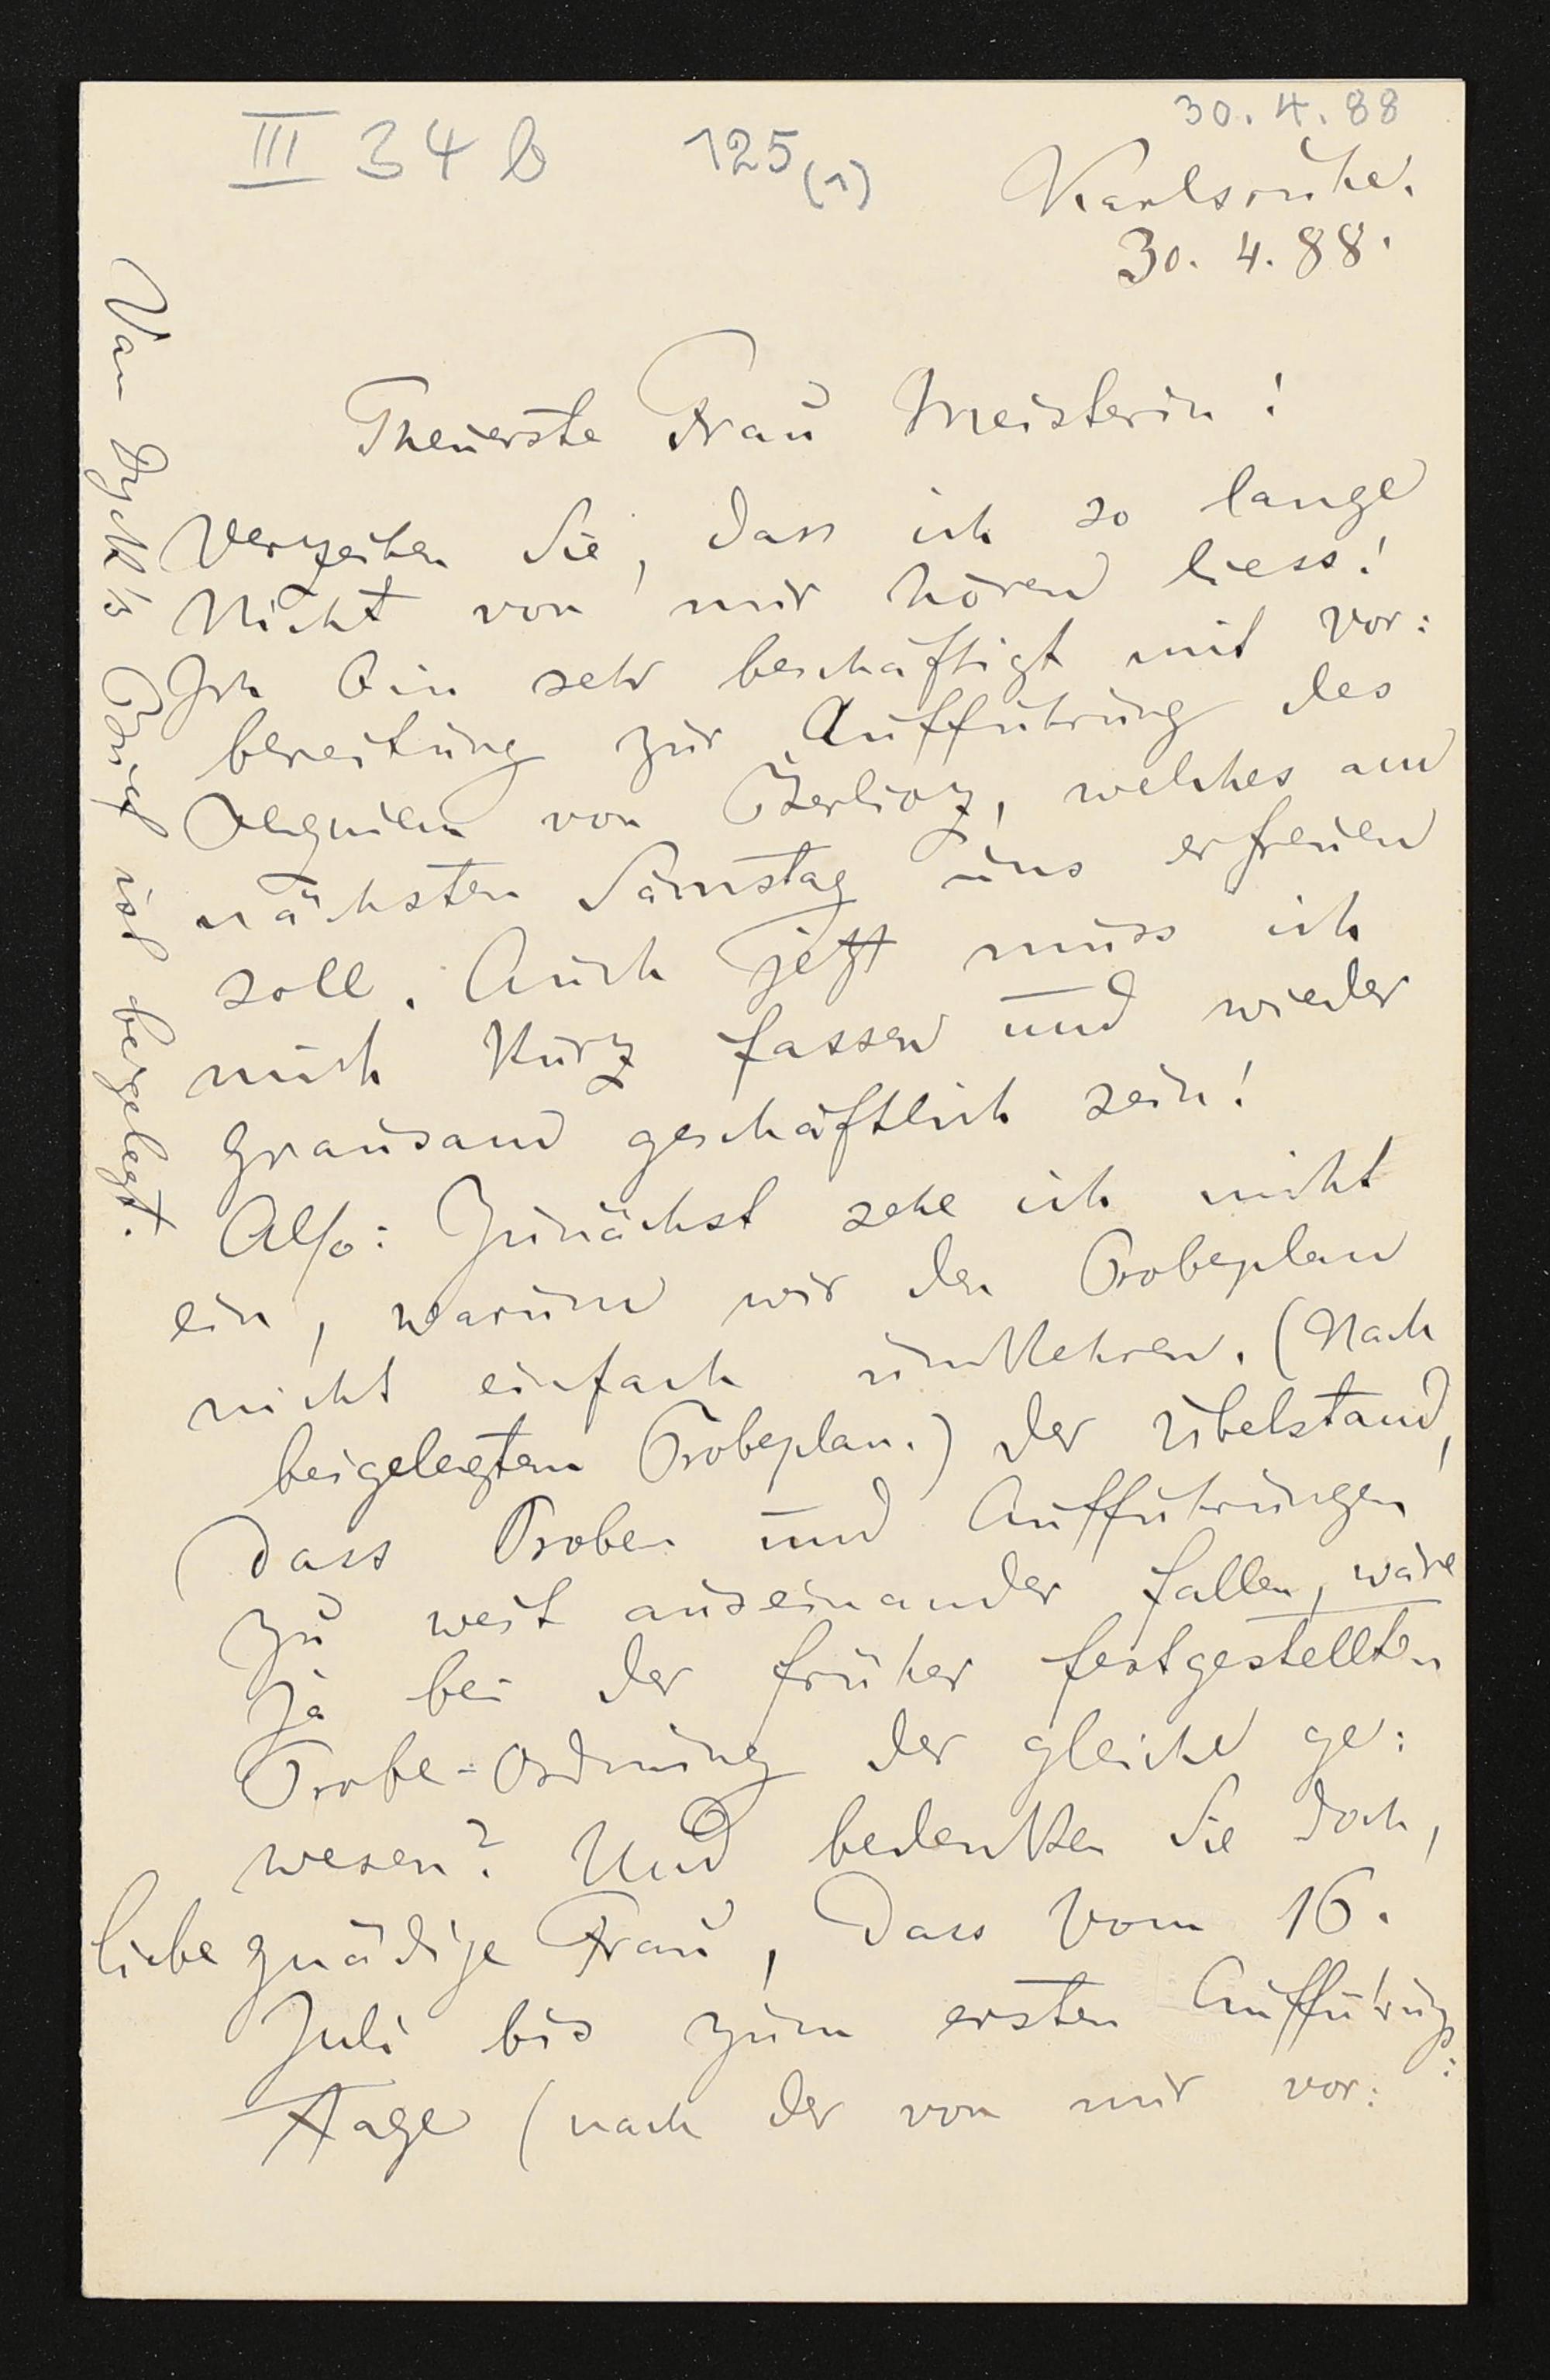 30. 4. 88
III 34 b 125 (1)
Karlsruhe.
30. 4. 88.
Theuerste Frau Meisterin!
Verzeihen Sie, dass ich so lange
Nicht von mir hören liess!
Ich bin sehr beschäftigt mit Vor:
bereitung zur Aufführung des
Requiem von Berlioz, welches am
nächsten Samstag uns erfreuen
soll. Auch jetzt muss ich
mich kurz fassen und wieder
grausam geschäftlich sein!
Also: Zunächst sehe ich nicht
ein, warum wir den Probeplan
nicht einfach umkehren. (Nach
beigelegtem Probeplan.) Der Übelstand,
dass Proben und Aufführungen
zu weit auseinander fallen, wäre
ja bei der früher festgestellten
Probe-Ordnung der gleiche ge:
wesen? Und bedenken Sie doch,
liebe gnädige Frau, dass vom 16.
Juli bis zum ersten Aufführungs:
Tage (nach der von mir vor:
Van Dyck's Brief ist beigelegt.